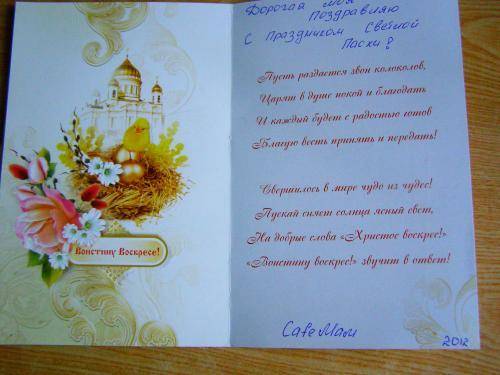 Воистину Воскресе!
Дорогая моя
Поздравляю
С Праздником Светлой
Пасхи!
Пусть раздается звон колоколов,
Царят в душе покой и благодать
И каждый будет с радостью готов
Благую весть принять и передать!
Свершилось в мире чудо из чудес!
Пускай сияет солнца ясный свет,
На добрые слова «Христос воскрес!»
«Воистину воскрес!» звучит в ответ!
CafeMam
2012